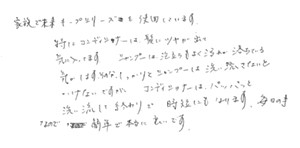 家族で末キープシリーズを使用しています。
特にコンディショナーは髪にツヤが出て
気に入ってます シャンプーは泡立ちもよく汚れが落ちている
気がします しっかりとシャンプーは洗い流さないと
いけないですが コンディショナーは、パパッと
洗い流して終わりで 時短にもなります。毎日の事
なので 簡単で本当に良いです。